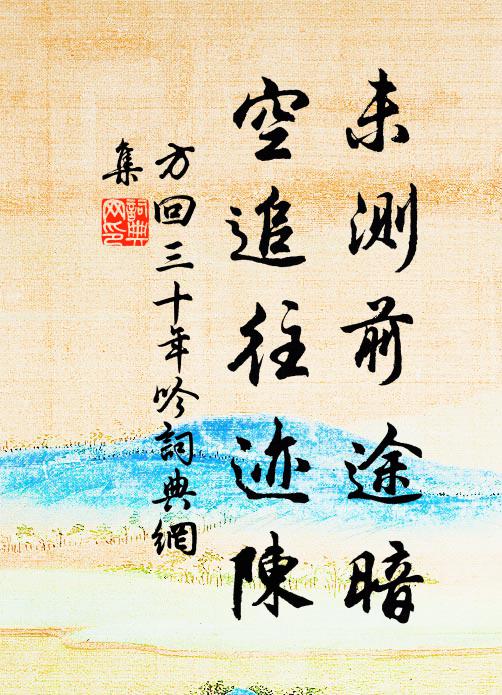 未測前途暗
空追往迹陳
方回三十年吟詞典網
集
詞典
网印